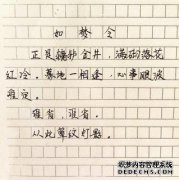 如梦令
正是辘轳金井，满砌落花
红冷。蓦地一相逢，心事眼波
难定。
谁省，谁省。
从此簟纹灯影。